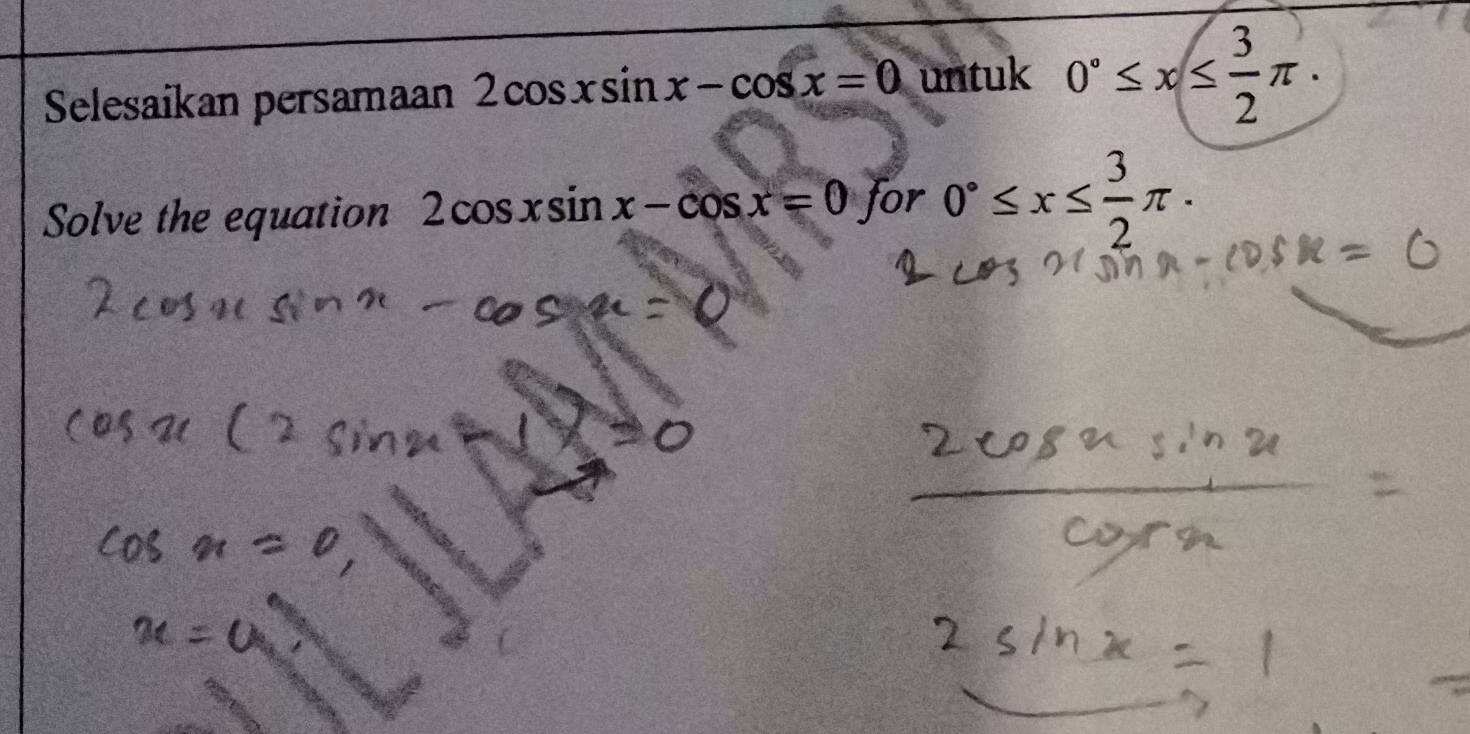 Selesaikan persamaan 2 cos x sin x – cos x = 0 untuk 0° ≤ x ≤ 3/2 π .
Solve the equation 2 cos x sin x – cos x = 0 for 0° ≤ x ≤ 3/2 π .
2 cos x sin x - cos x = 0
2 cos x sin x - cos x = 0
cos x ( 2 sin x - 1 ) = 0
2 cos x sin x / cos x =
cos x = 0,
2 sin x = 1